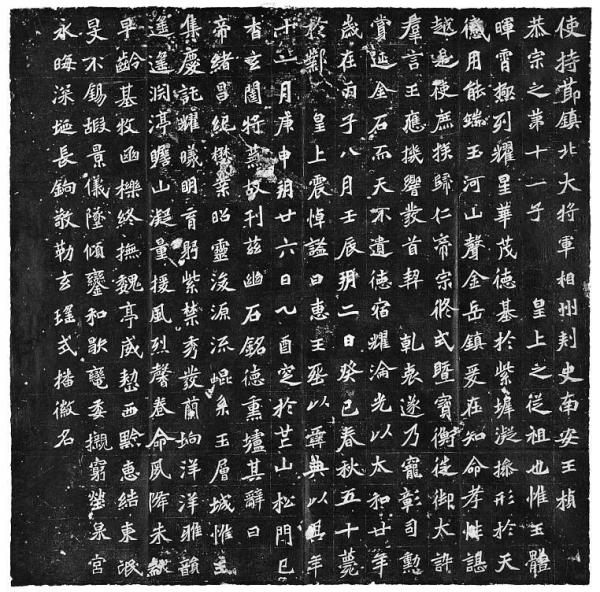 使持節鎮北大將軍相州刾史南安王楨
恭宗之第十一子 皇上之從祖也惟王體
暉霄極列耀星華茂德基於紫墀凝操形於天
儀用能端玉河山聲金岳鎮爰在知命孝性諶
越是使庶族歸仁帝宗攸式暨寶衡徙御太訃
羣言王應機響發首契 乾衷遂乃寵彰司勳
賞延金石而天不遺德宿耀淪光以太和廿年
歲在丙子八月壬辰朔二日癸巳春秋五十薨
於鄴 皇上震悼謚曰惠王葬以彛典以其年
十一月庚申朔廿六日乙酉窆於芒山松門已
杳玄闥將蕪故刊茲幽石銘德熏壚其辭曰
帝緒昌紀懋業昭靈浚源流崐系玉層城惟王
集慶託耀曦明育躬紫禁秀發蘭坰洋洋雅韻
遙遙淵渟瞻山凝量援風烈馨卷命夙降未黻
早齡基牧函櫟終撫魏亭威愸西黔惠結東氓
旻不錫嘏景儀墜傾鑾和歇轡委櫬窮塋泉宮
永晦深埏長鐍敬勒玄瑤式播徽名